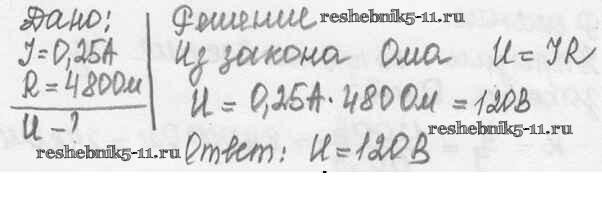 Дано: Решение
reshebnik5-11.ru
I=0,25А из закона Ома U=IR
R=480Ом U=0,25А·480Ом=120В
U-?
reshebnik5-11.ru
reshebnik5-11.ru Ответ: U=120В